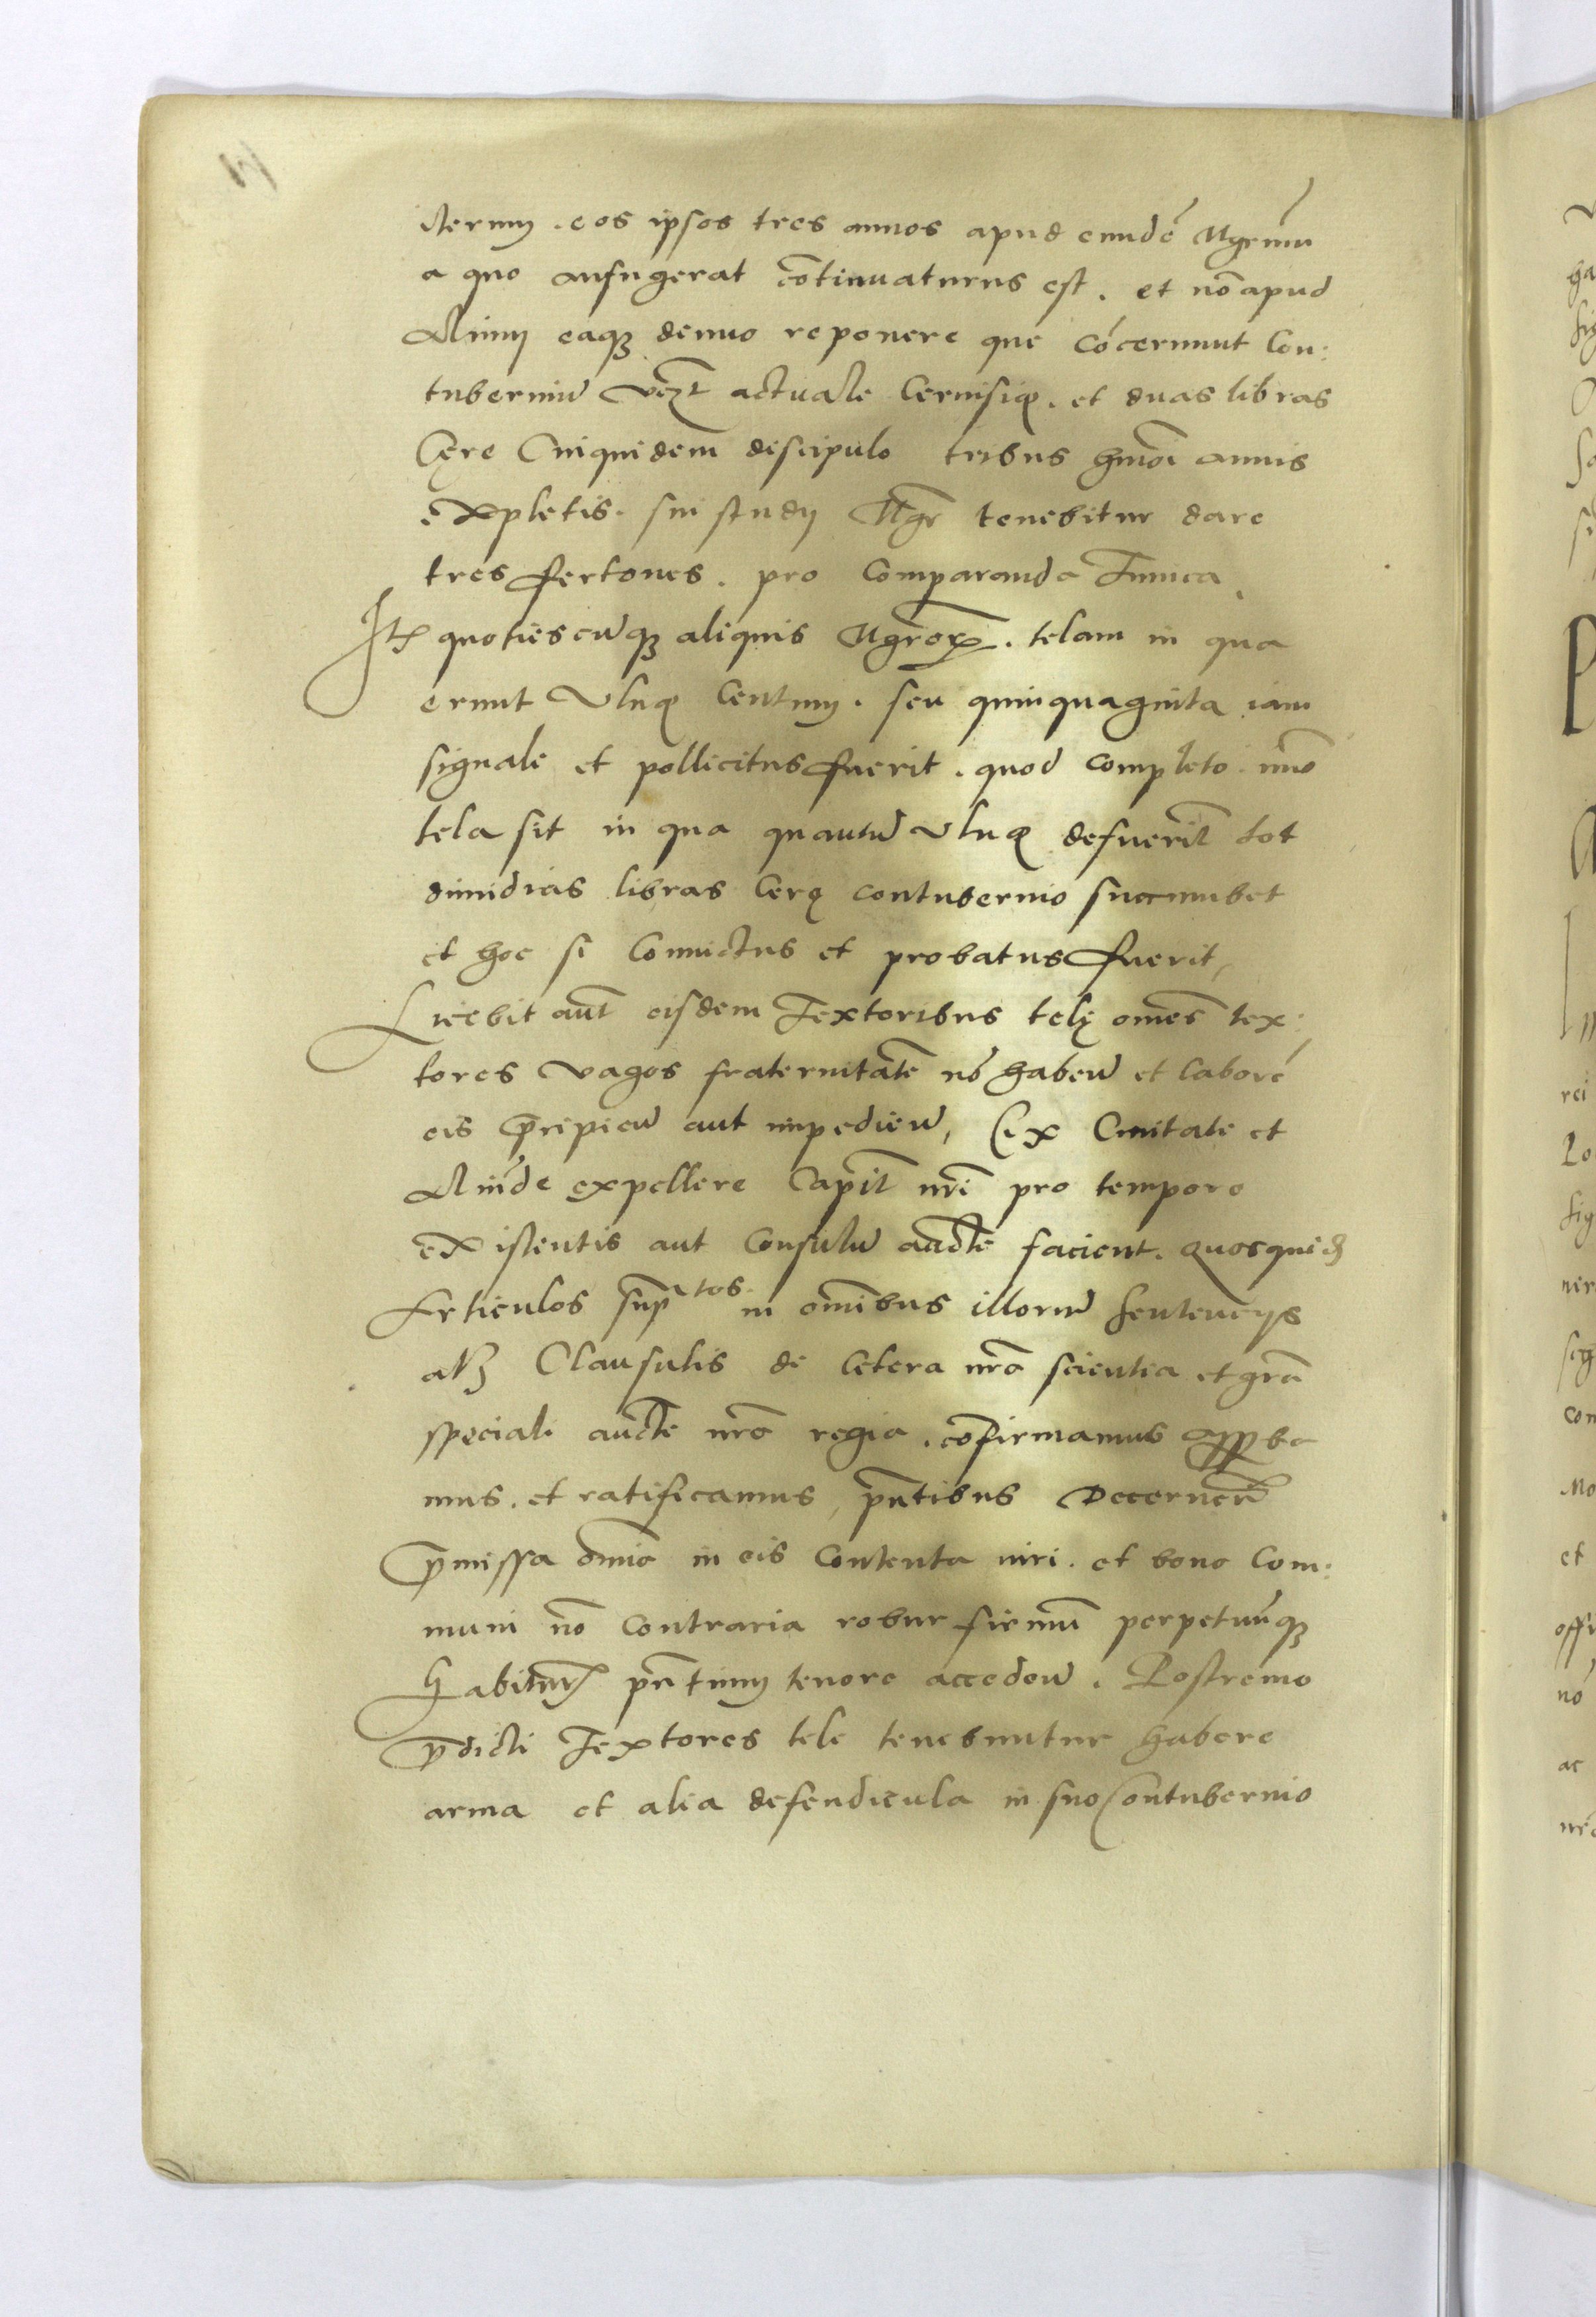 iterum . eos ipsos tres annos apud eundē Mgrum
a quo aufugerat cōtinuaturus est . et nō apud
Alium eaqȝ denuo reponere que cōcernunt Con:
tuberniū vȝt actuale Cervisię . et duas libras
Cęre Cuiquidem discipulo tribus hmōi annis
expletis . sui studij Mgr tenebitur dare
tres fertones . pro Comparanda Tunica
Itē quotiescūqȝ aliquis Mgrorꝝ . telam in qua
erunt Vlnę Centum . seu quinquaginta iam
signale et pollicitus fuerit . quod completo . nūo
tela sit in qua quantū vlnę defuerīt tot
dimidias libras Cerę contubernio succumbet
et hoc si Convictus et probatus fuerit,
Licebit aūt eisdem Textoribus telę omēs tex:
tores vagos fraternitatē nō habeñ et laborē
eis p̄ripieñ aut impedieñ, Ex Civitate et
Aliūde expellere Capīt nrī pro tempore
existentis aut Consulū auctē facient . quosquidē
Articulos supᵃtos in omībus illorū sentencijs
atqȝ Clausulis de Cetera nrā scientia et grā
speciali auctē nrā regia . cōfirmamus appᵇa
mus . et ratificamus, pn̄tibus Decerneñ
p̄missa omīa in eis Contenta iuri . et bono Com:
muni nō Contraria robur firmū perpetuūqȝ
Habiturꝭ pn̄tium tenore accedeñ . Postremo
p̄dicti Textores tele tenebuntur habere
arma et alia defendicula in suo Contubernio